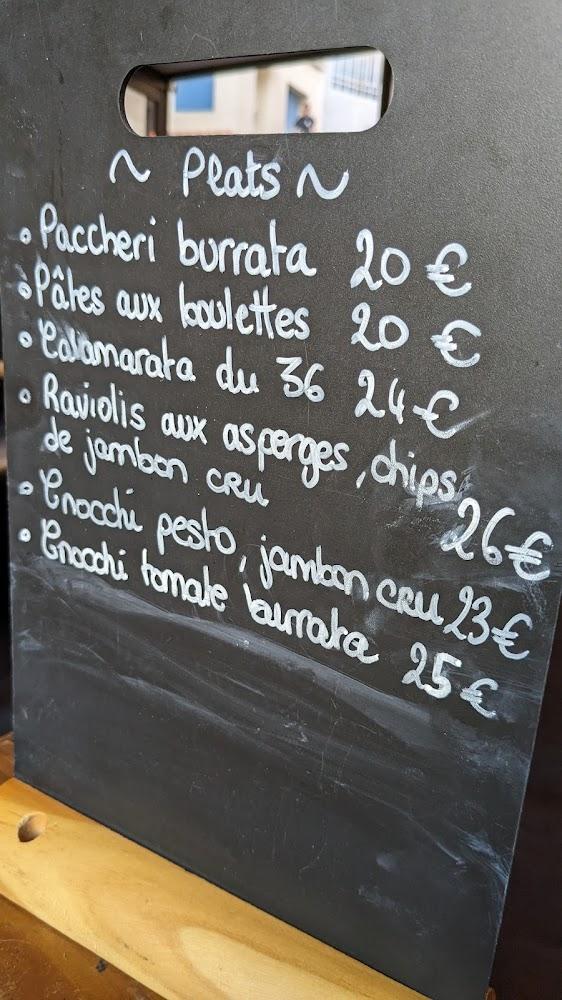 ~ Plats ~
• Paccheri burrata 20 €
• Pâtes aux boulettes 20 €
• Calamarata du 36 24 €
• Raviolis aux asperges, chips
de jambon cru 26 €
• Gnocchi pesto, jambon cru 23 €
• Gnocchi tomate burrata 25 €